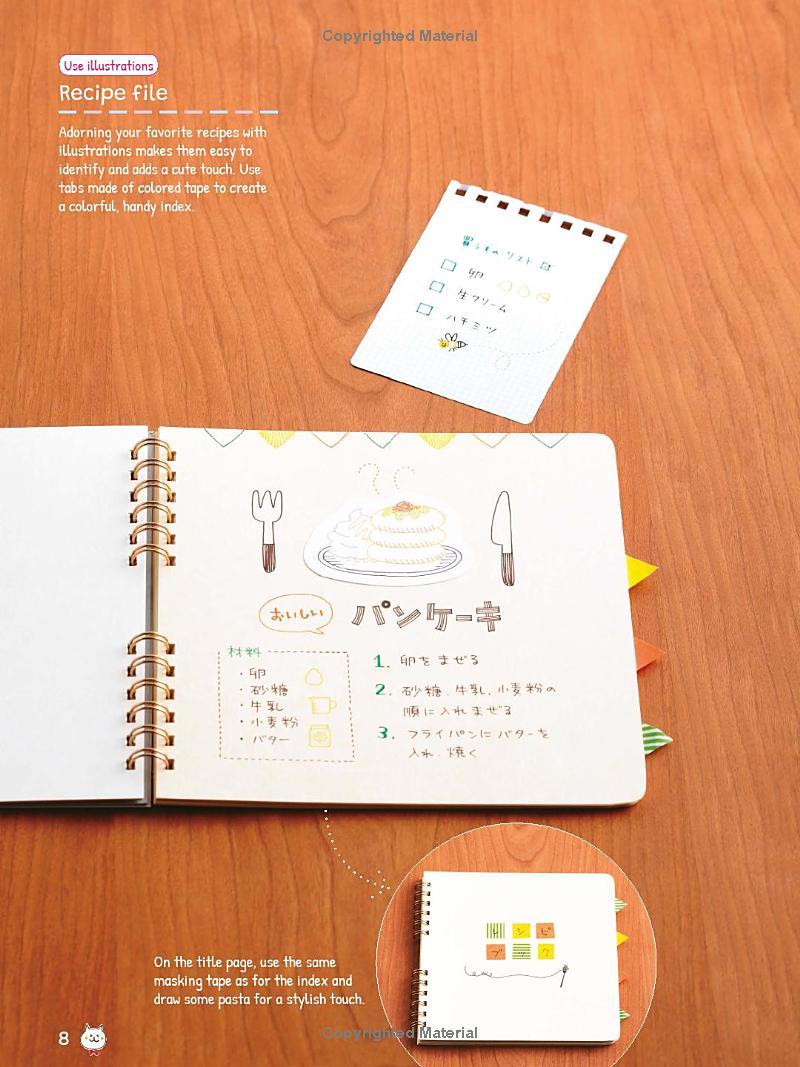 Copyrighted Material
Use illustrations
Recipe file
Adorning your favorite recipes with
illustrations makes them easy to
identify and adds a cute touch. Use
tabs made of colored tape to create
a colorful, handy index.
買うもの リスト
卵
生クリーム
ハチミツ
おいしい パンケーキ
材料
・卵
・砂糖
・牛乳
・小麦粉
・バター
1. 卵をまぜる
2. 砂糖、牛乳、小麦粉の
順に入れまぜる
3. フライパンにバターを
入れ、焼く
レシピ
ブック
On the title page, use the same
masking tape as for the index and
draw some pasta for a stylish touch.
8
Copyrighted Material